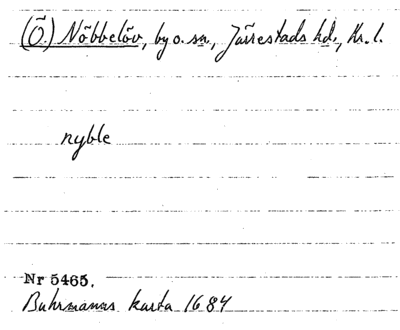 (Ö.) Nöbbelöv, by o. sn, Järrestads hd., Kr. l.
nyble
Nr 5465.
Buhrmanns karta 1684